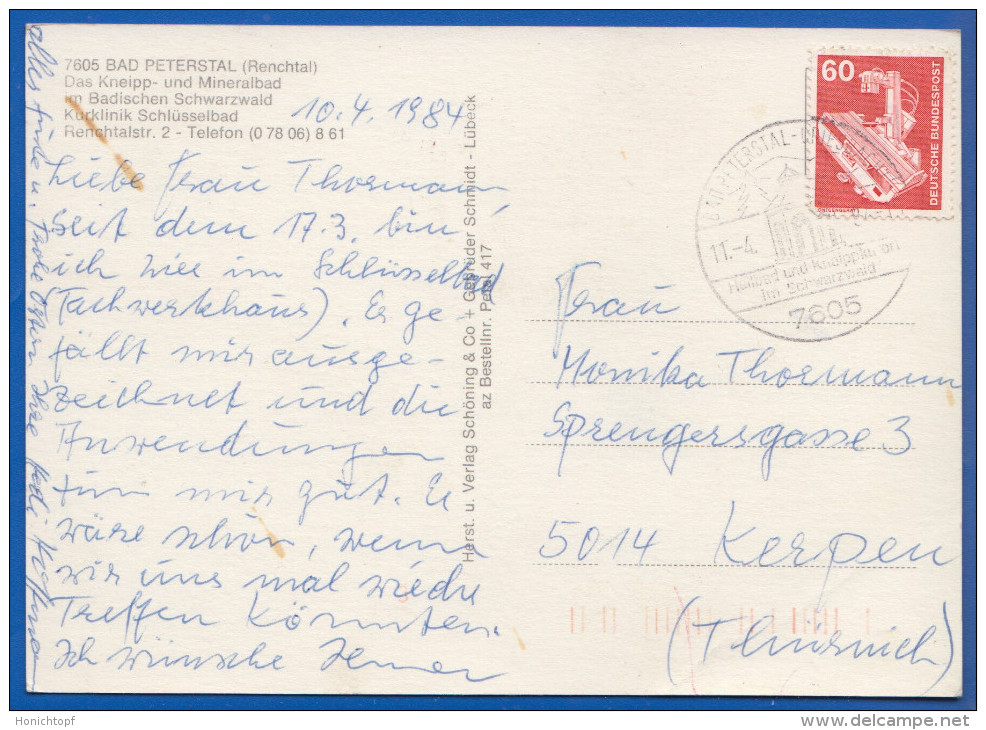 7605 BAD PETERSTAL (Renchtal)
Das Kneipp- und Mineralbad
im Badischen Schwarzwald
Kurklinik Schlüsselbad
Renchtalstr. 2 - Telefon (0 78 06) 8 61
10.4.1984
Liebe Frau Thormann
seit dem 17.3. bin
ich hier im Schlüsselbad
(Fachwerkhaus). Es ge-
fällt mir ausge-
zeichnet und die
Anwendungen
tun mir gut. Es
wäre schön, wenn
wir uns mal wieder
Treffen könnten.
Ich wünsche Ihnen
alles Gute u. Frohe Ostern Ihre Hedi
Herst. u. Verlag Schöning & Co + Gebrüder Schmidt - Lübeck
az Bestellnr. Petal 417
60
DEUTSCHE BUNDESPOST
BAD PETERSTAL-
11.-4.
Heilbad und Kneippkurort
im Schwarzwald
7605
Frau
Monika Thormann
Sprengersgasse 3
5014 Kerpen
(Thürnich)
Honichtopf
www.delcampe.net